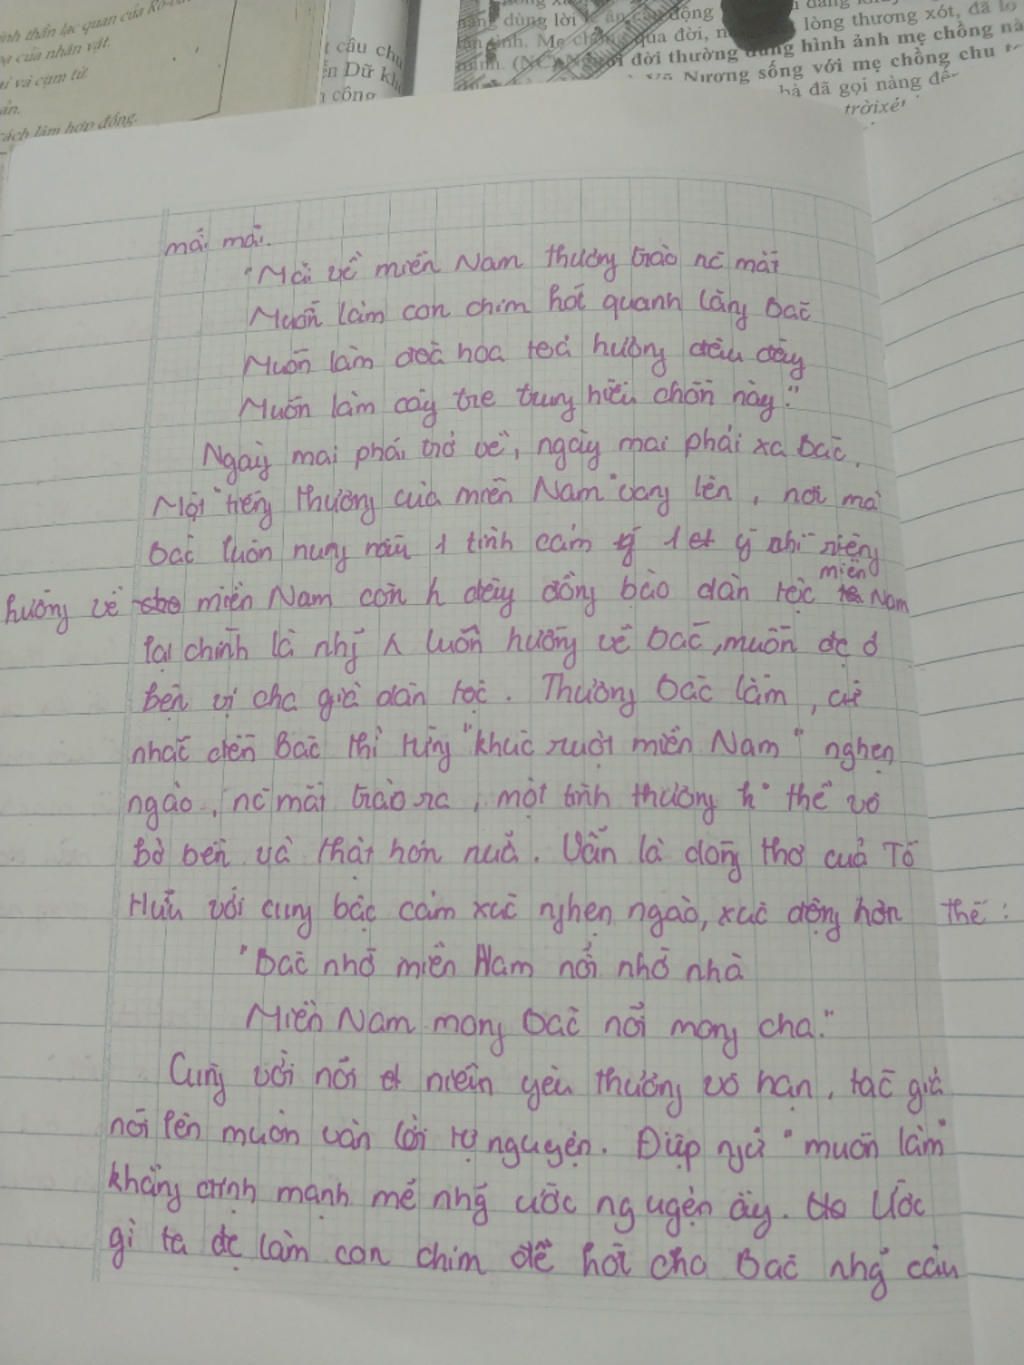 ình thần lạc quan của Rô-
của nhân vật.
ại và cụm từ.
ách làm hợp đồng.
t câu chu
ễn Dữ kh
công
lòng thương xót, đã
dùng lời
động
qua đời,
đời thường
hình ảnh mẹ chồng nà
Nương sống với mẹ chồng chu
bà đã gọi nàng để
trời xét
mãi mãi.
"Mai về miền Nam thương trào nc mắt
Muốn làm con chim hót quanh lăng Bác
Muốn làm đoá hoa toả hương đâu đây
Muốn làm cây tre trung hiếu chốn này."
Ngày mai phải trở về, ngày mai phải xa Bác.
Một "tiếng thương của miền Nam" vang lên, nơi mà
Bác luôn nung nấu 1 tình cảm 1 ý nhĩ riêng
hướng về miền Nam còn h đây đồng bào dân tộc miền Nam
lại chính là nhg ^ luôn hướng về Bác, muốn đc ở
bên vị cha già dân tộc. Thương Bác lắm, cứ
nhắc đến Bác thì từng "khúc ruột miền Nam" nghẹn
ngào, nc mắt trào ra, một tình thương k° thể vô
bờ bến và thật hơn nuã. Vẫn là dòng thơ của Tố
Hữu với cung bậc cảm xúc nghẹn ngào, xúc động hơn thế:
"Bác nhớ miền Nam nỗi nhớ nhà
Miền Nam mong Bác nỗi mong cha."
Cùng với nỗi niềm yêu thương vô hạn, tác giả
nói lên muôn vàn lời tự nguyện. Điệp ngữ "muốn làm"
khẳng định mạnh mẽ nhg ước nguyện ấy. Ước
gì ta đc làm con chim để hót cho Bác nhg câu